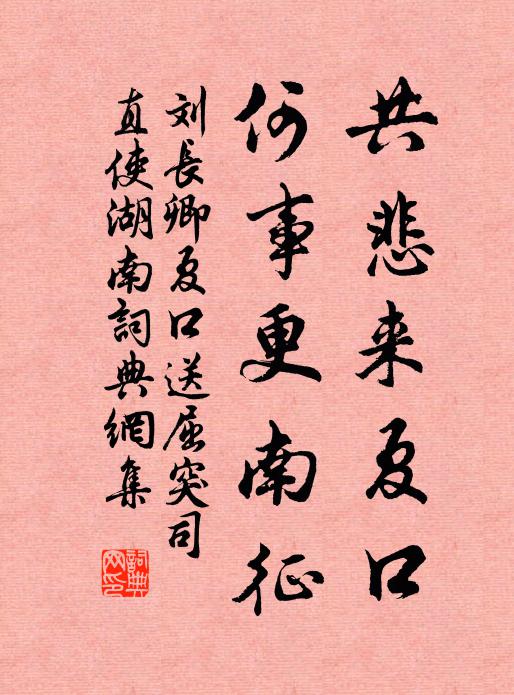 共悲来夏口
何事更南征
刘長卿夏口送屈突司
直使湖南詞典網集
詞典網印